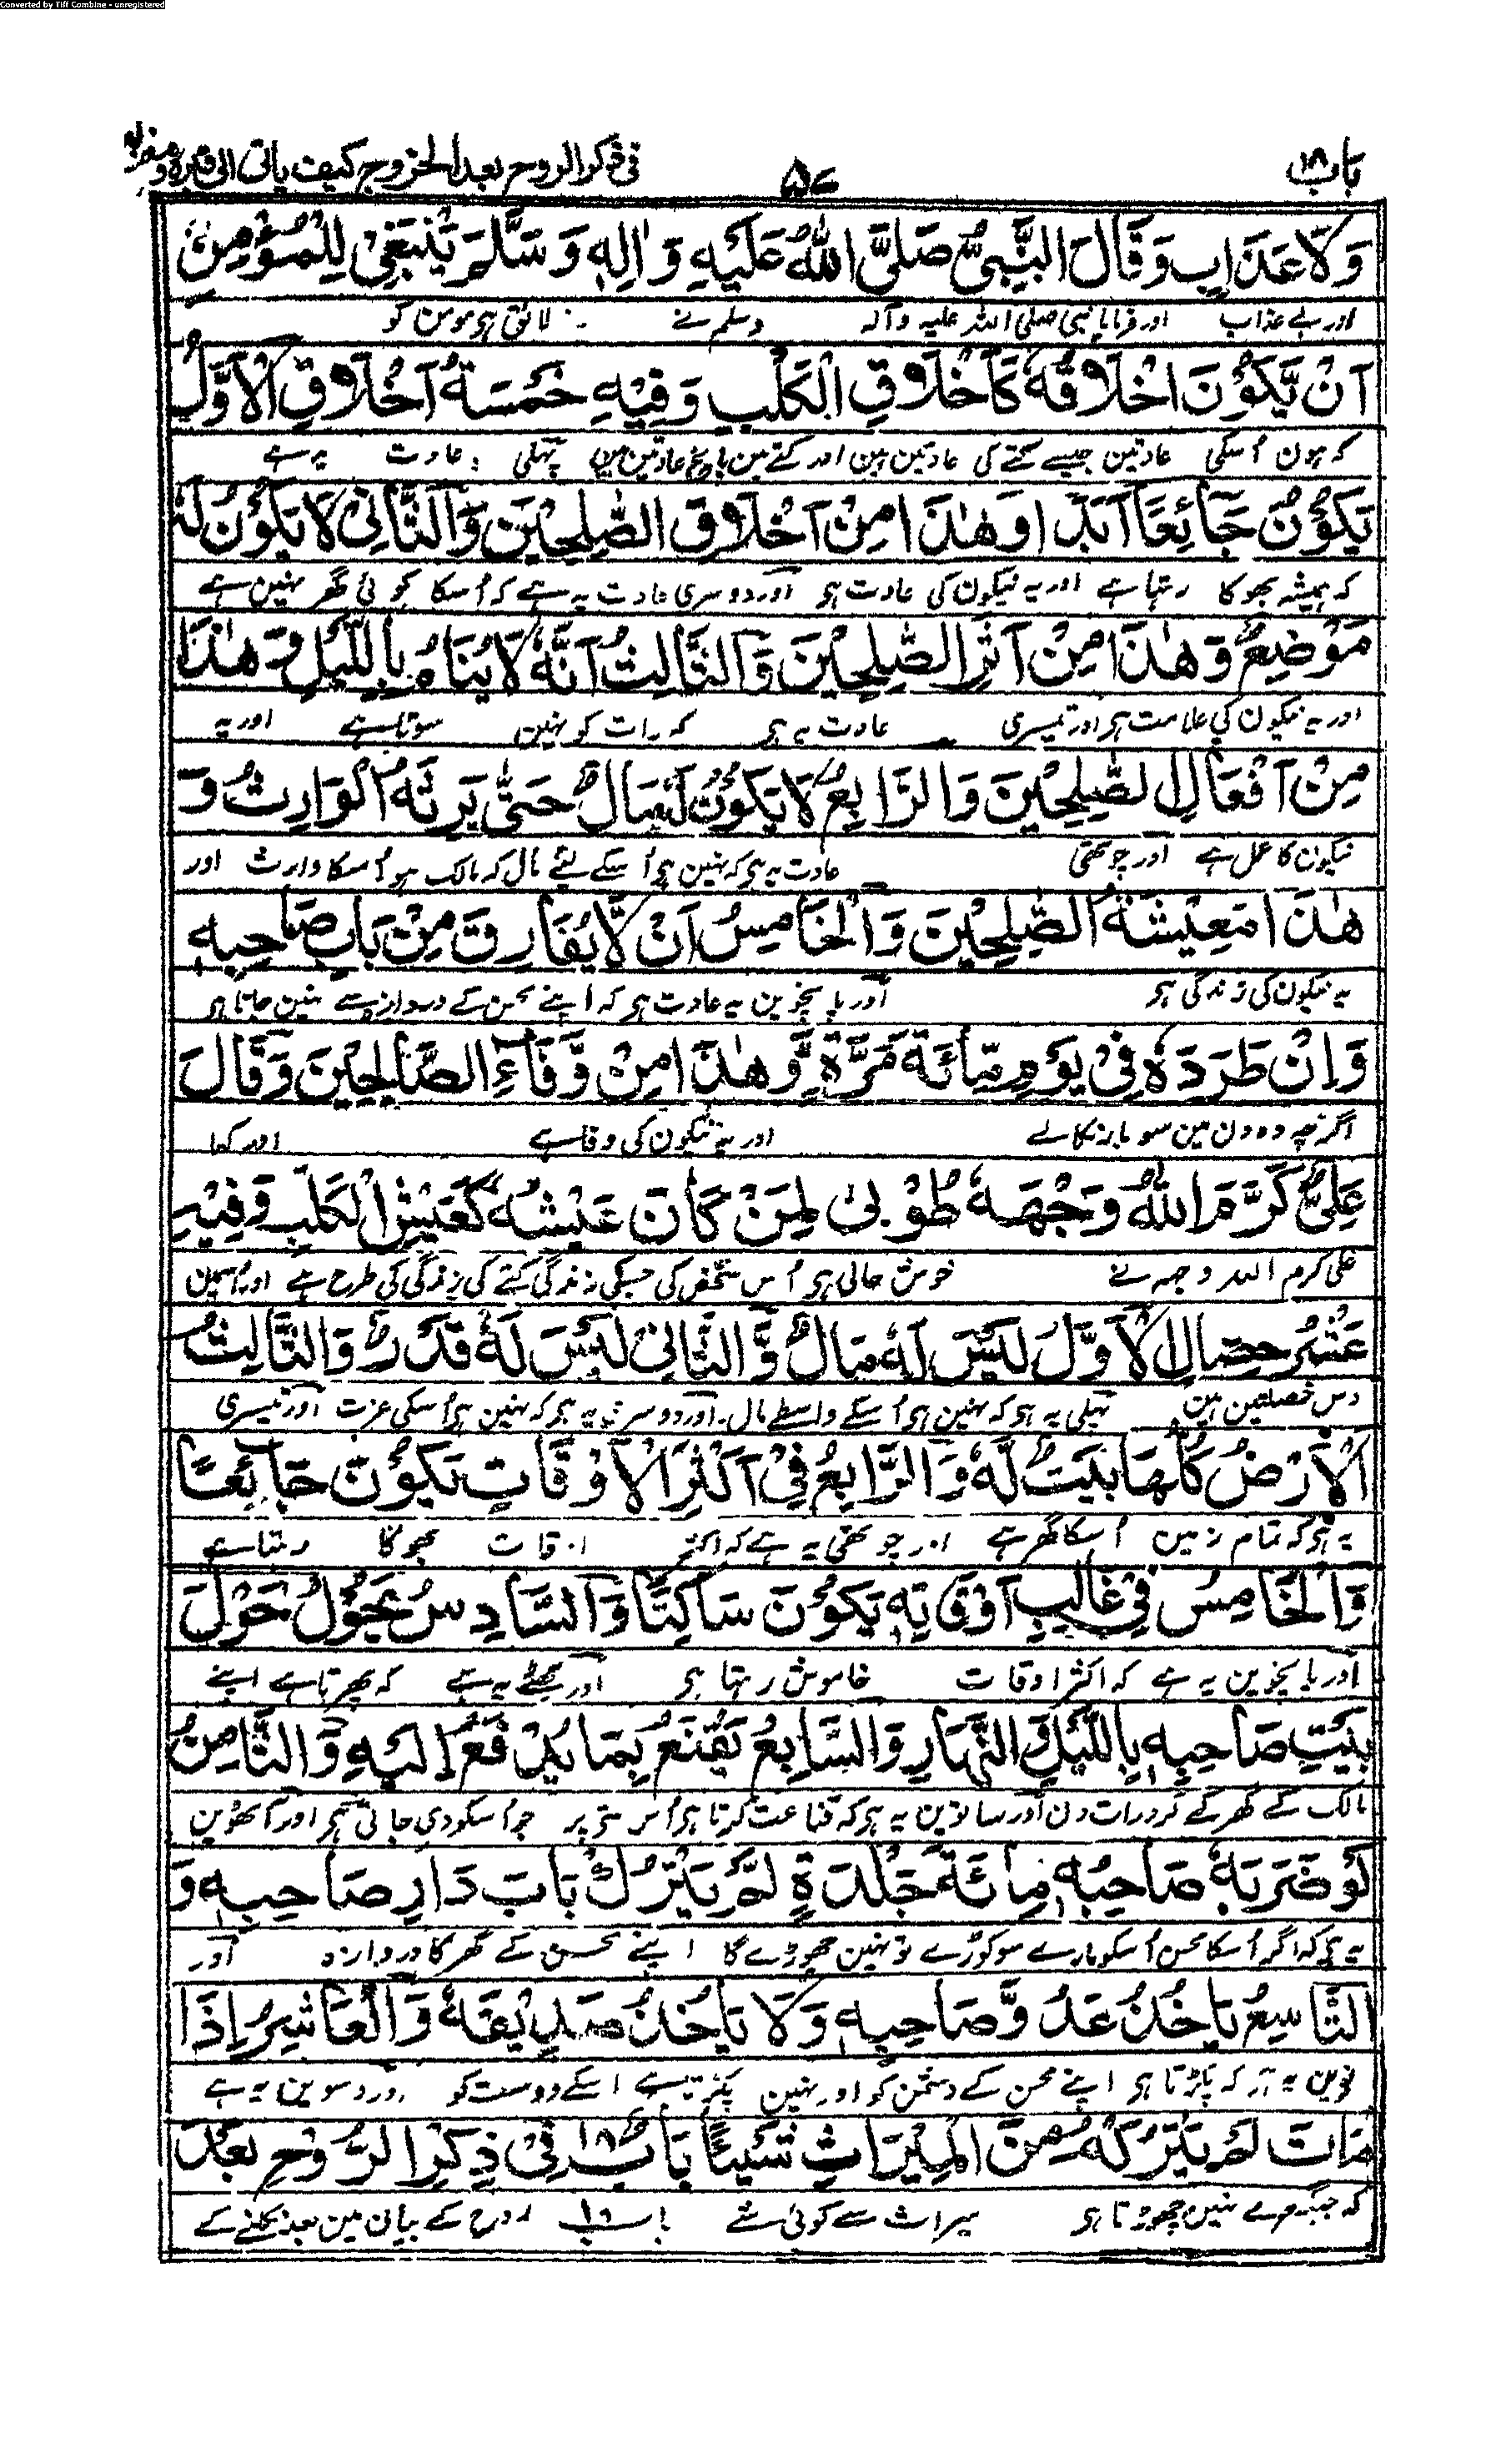 Converted by Tiff Combine - unregistered
باب ۱۸
۵۷
فی ذکر الروح بعد الخروج کیف یاتی الی قبرہ و منزلہ
وَلَا عَذَابٍ وَقَالَ النَّبِیُّ صَلَّی اللّٰهُ عَلَیْهِ وَاٰلِهٖ وَسَلَّمَ یَنْبَغِیْ لِلْمُؤْمِنِ
اور بے عذاب اور فرمایا نبی صلی اللہ علیہ وآلہ وسلم نے لائق ہی مومن کو
اَنْ یَّکُوْنَ اَخْلَاقُهٗ کَاَخْلَاقِ الْکَلْبِ وَفِیْهِ خَمْسَةُ اَخْلَاقٍ الْاَوَّلُ
کہ ہون اُسکی عادتین جیسے کتے کی عادتین ہین اور کتے مین پانچ عادتین ہین پہلی عادت یہ ہے
یَکُوْنُ جَائِعًا اَبَدًا وَهٰذَا مِنْ اَخْلَاقِ الصّٰلِحِیْنَ وَالثَّانِیْ لَا یَکُوْنُ لَهٗ
کہ ہمیشہ بھوکا رہتا ہے اور یہ نیکون کی عادت ہی اور دوسری عادت یہ ہے کہ اُسکا کوئی گھر نہین ہے
مَوْضِعٌ وَهٰذَا مِنْ اَثَرِ الصّٰلِحِیْنَ وَالثَّالِثُ اَنَّهٗ لَا یُنَامُ بِاللَّیْلِ وَهٰذَا
اور یہ نیکون کی علامت ہی اور تیسری عادت یہ ہی کہ رات کو نہین سوتا ہے اور یہ
مِنْ اَفْعَالِ الصّٰلِحِیْنَ وَالرَّابِعُ لَا یَکُوْنُ لَهٗ مَالٌ حَتّٰی یَرِثَهُ الْوَارِثُ وَ
نیکون کا عمل ہے اور چوتھی عادت یہ ہی کہ نہین ہی اُسکے لیئے مال کہ مالک ہو اُسکا وارث اور
هٰذَا مَعِیْشَةُ الصّٰلِحِیْنَ وَالْخَامِسُ اَنْ لَّا یُفَارِقَ مِنْ بَابِ صَاحِبِهٖ
یہ نیکون کی زندگی ہی اور پانچوین یہ عادت ہی کہ اپنے محسن کے دروازہ سے نہین جاتا ہی
وَاِنْ طَرَدَهٗ فِیْ یَوْمٍ مِّائَةَ مَرَّةٍ وَّهٰذَا مِنْ وَّفَاءِ الصَّالِحِیْنَ وَقَالَ
اگرچہ وہ دن مین سو بار نکالے اور یہ نیکون کی وفا ہے اور کہا
عَلِیٌّ کَرَّمَ اللّٰهُ وَجْهَهٗ طُوْبٰی لِمَنْ کَانَ عَیْشُهٗ کَعَیْشِ الْکَلْبِ وَفِیْهِ
علی کرم اللہ وجہہ نے خوش حالی ہی اُس شخص کی جسکی زندگی کتے کی زندگی کی طرح ہے اور اُسمین
عَشْرُ خِصَالٍ الْاَوَّلُ لَیْسَ لَهٗ مَالٌ وَّالثَّانِیْ لَیْسَ لَهٗ قَدْرٌ وَالثَّالِثُ
دس خصلتین ہین پہلی یہ ہی کہ نہین ہی اُسکے واسطے مال۔ اور دوسری یہ ہی کہ نہین ہی اُسکی عزت اور تیسری
الْاَرْضُ کُلُّهَا بَیْتٌ لَّهٗ وَالرَّابِعُ فِیْ اَکْثَرِ الْاَوْقَاتِ یَکُوْنُ جَائِعًا
یہ ہی کہ تمام زمین اُسکا گھر ہے اور چوتھی یہ ہے کہ اکثر اوقات بھوکا رہتا ہے
وَالْخَامِسُ فِیْ غَالِبِ اَوْقَاتِهٖ یَکُوْنُ سَاکِتًا وَالسَّادِسُ یَحُوْلُ حَوْلَ
اور پانچوین یہ ہے کہ اکثر اوقات خاموش رہتا ہی اور چھٹے یہ ہے کہ پھرتا ہے اپنے
بَیْتِ صَاحِبِهٖ بِاللَّیْلِ وَالنَّهَارِ وَالسَّابِعُ یَقْنَعُ بِمَا یُدْفَعُ اِلَیْهِ وَالثَّامِنُ
مالک کے گھر کے گرد رات دن اور ساتوین یہ ہی کہ قناعت کرتا ہی اُس چیز پر جو اُسکو دی جاتی ہی اور آٹھوین
لَوْ ضَرَبَهٗ صَاحِبُهٗ مِائَةَ جَلْدَةٍ لَمْ یَتْرُكْ بَابَ دَارِ صَاحِبِهٖ وَ
یہ ہی کہ اگر اُسکا محسن اُسکو مارے سو کوڑے تو نہین چھوڑے گا اپنے محسن کے گھر کا دروازہ اور
التَّاسِعُ یَاخُذُ عَدُوَّ صَاحِبِهٖ وَلَا یَاخُذُ صَدِیْقَهٗ وَالْعَاشِرُ اِذَا
نوین یہ کہ پکڑتا ہی اپنے محسن کے دشمن کو اور نہین پکڑتا ہے اسکے دوست کو اور دسوین یہ ہے
مَاتَ لَمْ یَتْرُكْ مِنَ الْمِیْرَاثِ شَیْئًا بَابٌ ۱۸ فِیْ ذِکْرِ الرُّوْحِ بَعْدَ
کہ جبکہ مرے نہین چھوڑتا ہی میراث سے کوئی شے باب ۱۸ روح کے بیان مین بعد نکلنے کے